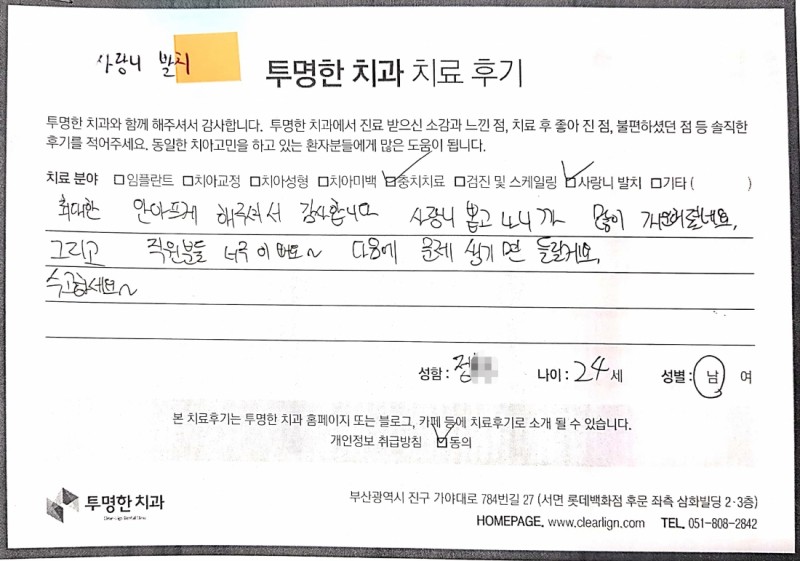 사랑니 발치
투명한 치과 치료 후기
투명한 치과와 함께 해주셔서 감사합니다. 투명한 치과에서 진료 받으신 소감과 느낀 점, 치료 후 좋아 진 점, 불편하셨던 점 등 솔직한
후기를 적어주세요. 동일한 치아고민을 하고 있는 환자분들에게 많은 도움이 됩니다.
치료 분야 □임플란트 □치아교정 □치아성형 □치아미백 ☑충치치료 □검진 및 스케일링 ☑사랑니 발치 □기타 ( )
최대한 안아프게 해주셔서 감사합니다 사랑니 뽑고 나니까 많이 개운해졌네요.
그리고 직원분들 너무 이뻐요~ 다음에 문제 생기면 들릴게요.
수고하세요~
성함 : 정 나이 : 24 세 성별 : 남 여
본 치료후기는 투명한 치과 홈페이지 또는 블로그, 카페 등에 치료후기로 소개 될 수 있습니다.
개인정보 취급방침 ☑동의
투명한 치과
부산광역시 진구 가야대로 784번길 27 (서면 롯데백화점 후문 좌측 삼화빌딩 2·3층)
HOMEPAGE. www.clearlign.com TEL. 051-808-2842